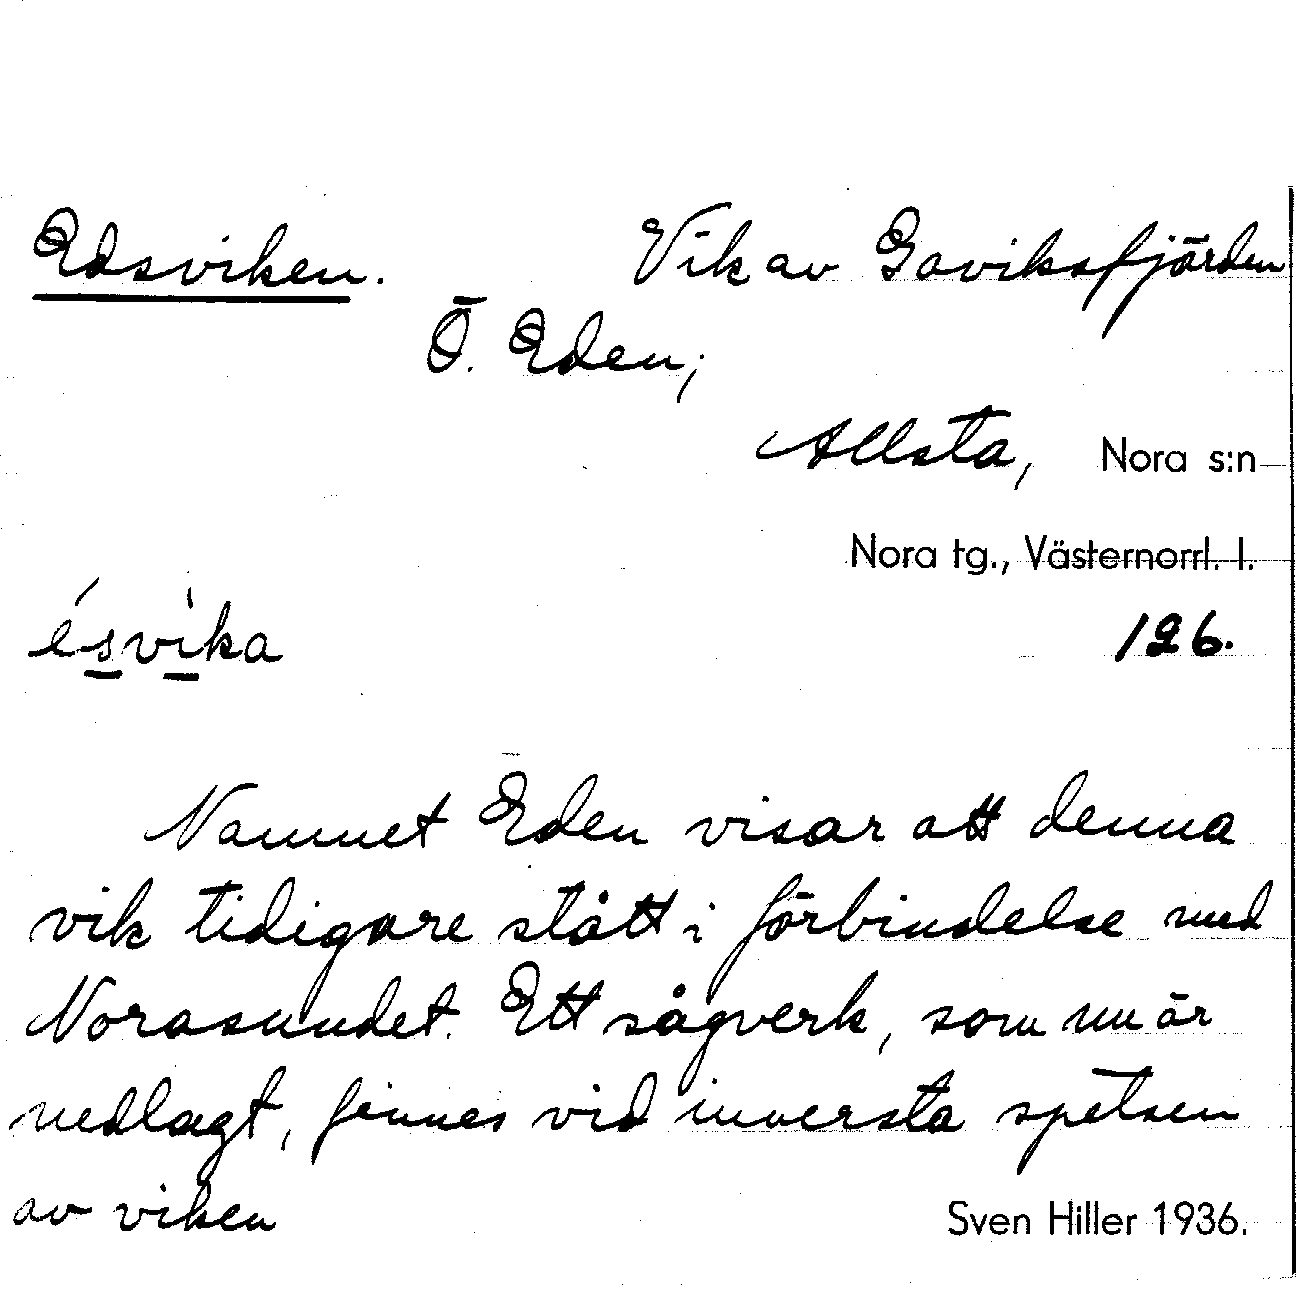 Edsviken. Vik av Gaviksfjärden
Ö. Eden;
Allsta, Nora s:n
Nora tg., Västernorrl. l.
ésvìka 126.
Namnet Eden visar att denna
vik tidigare stått i förbindelse med
Norasundet. Ett sågverk, som nu är
nedlagt, finnes vid innersta spetsen
av viken
Sven Hiller 1936.